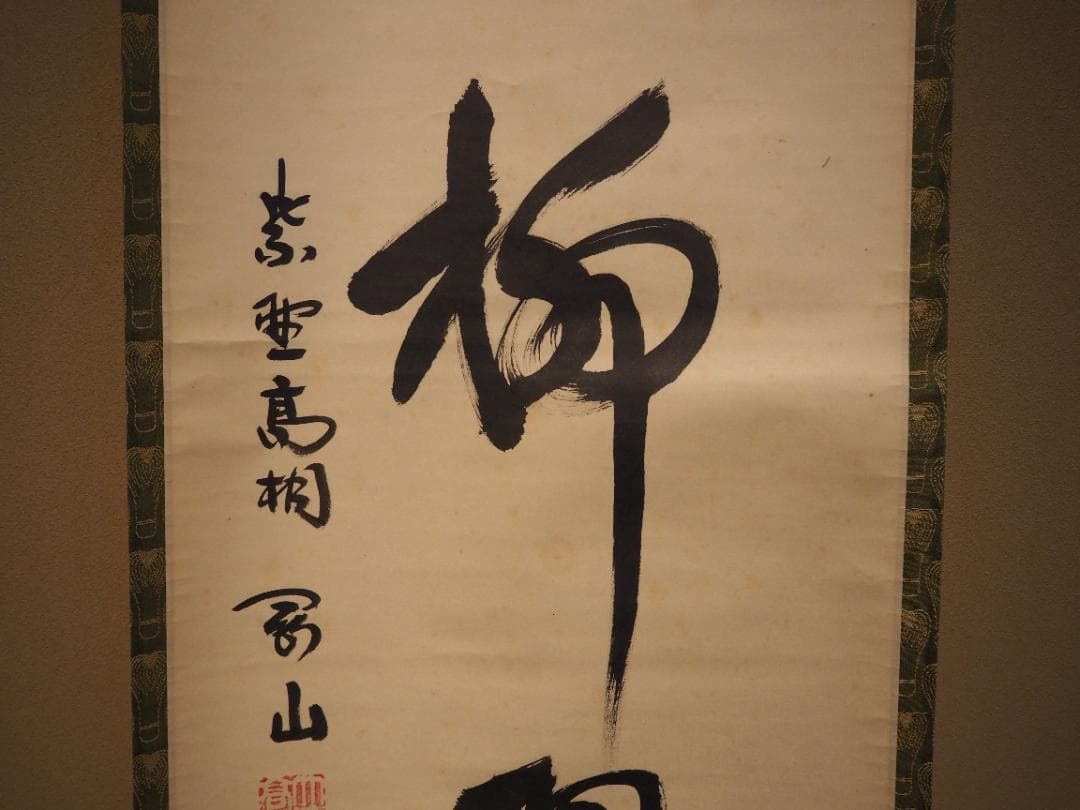 柳
紫野高桐 剛山